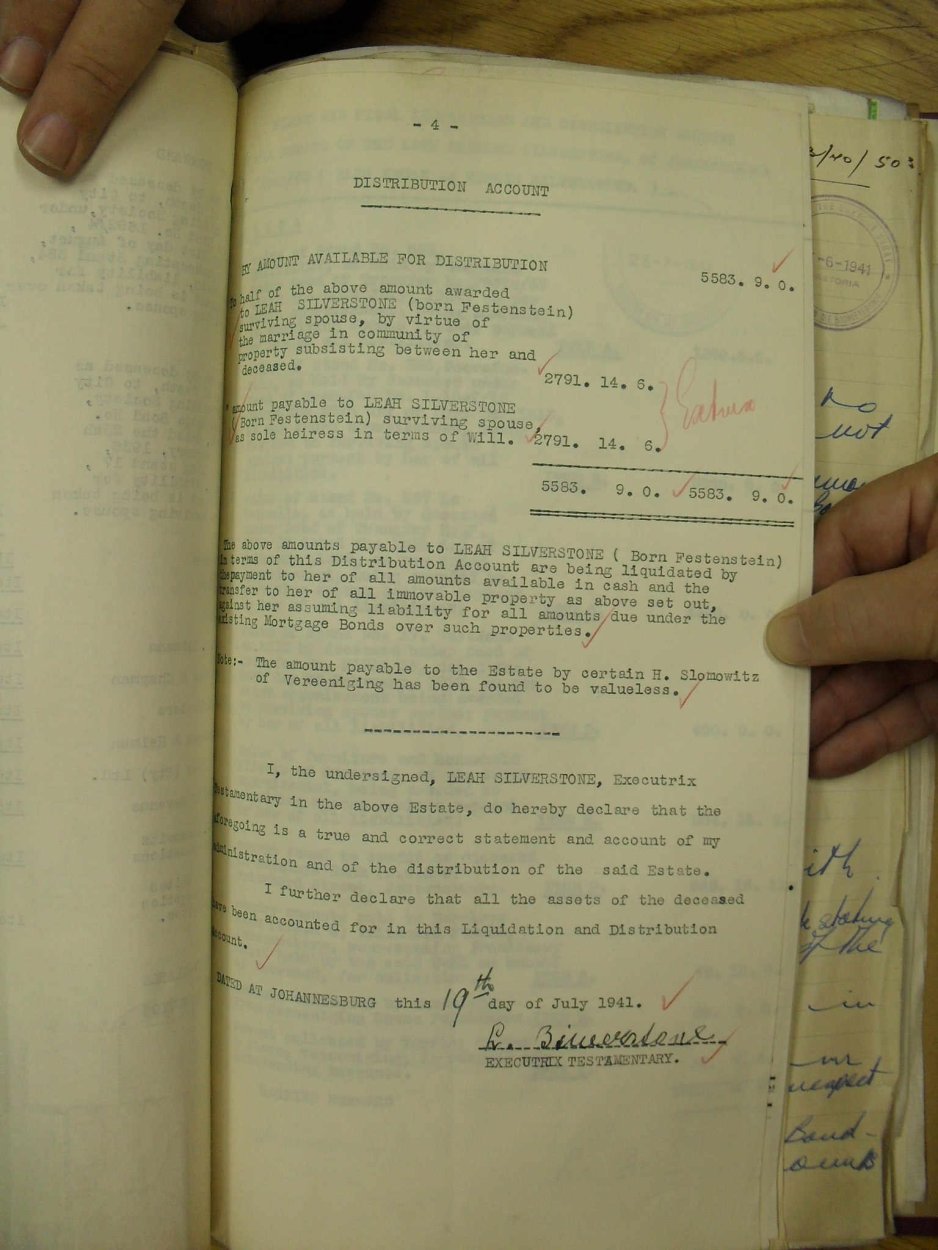 - 4 -
DISTRIBUTION ACCOUNT
BY AMOUNT AVAILABLE FOR DISTRIBUTION 5583. 9. 0.
To half of the above amount awarded
to LEAH SILVERSTONE (born Festenstein)
surviving spouse, by virtue of
the marriage in community of
property subsisting between her and
deceased. 2791. 14. 6.
" amount payable to LEAH SILVERSTONE
(Born Festenstein) surviving spouse,
as sole heiress in terms of Will. 2791. 14. 6.
5583. 9. 0. 5583. 9. 0.
The above amounts payable to LEAH SILVERSTONE ( Born Festenstein)
in terms of this Distribution Account are being liquidated by
the payment to her of all amounts available in cash and the
transfer to her of all immovable property as above set out,
against her assuming liability for all amounts due under the
existing Mortgage Bonds over such properties.
Note:- The amount payable to the Estate by certain H. Slomowitz
of Vereeniging has been found to be valueless.
I, the undersigned, LEAH SILVERSTONE, Executrix
Testamentary in the above Estate, do hereby declare that the
aforegoing is a true and correct statement and account of my
administration and of the distribution of the said Estate.
I further declare that all the assets of the deceased
have been accounted for in this Liquidation and Distribution
Account.
DATED AT JOHANNESBURG this 19th day of July 1941.
EXECUTRIX TESTAMENTARY.
3/40/50
-6-1941
not
of the
in
respect
Bond